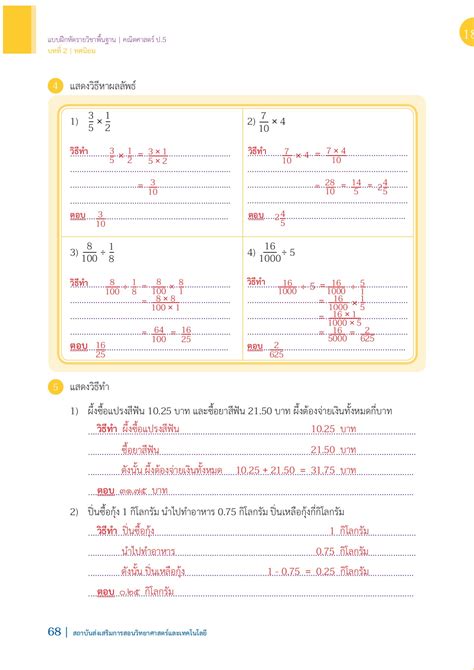 แบบฝึกหัดรายวิชาพื้นฐาน | คณิตศาสตร์ ป.5
บทที่ 2 | ทศนิยม
18
4 แสดงวิธีหาผลลัพธ์
1) 3/5 × 1/2
วิธีทำ 3/5 × 1/2 = 3 × 1/5 × 2
= 3/10
ตอบ 3/10
2) 7/10 × 4
วิธีทำ 7/10 × 4 = 7 × 4/10
= 28/10 = 14/5 = 2 4/5
ตอบ 2 4/5
3) 8/100 ÷ 1/8
วิธีทำ 8/100 ÷ 1/8 = 8/100 × 8/1
= 8 × 8/100 × 1
= 64/100 = 16/25
ตอบ 16/25
4) 16/1000 ÷ 5
วิธีทำ 16/1000 ÷ 5 = 16/1000 ÷ 5/1
= 16/1000 × 1/5
= 16 × 1/1000 × 5
= 16/5000 = 2/625
ตอบ 2/625
5 แสดงวิธีทำ
1) ผึ้งซื้อแปรงสีฟัน 10.25 บาท และซื้อยาสีฟัน 21.50 บาท ผึ้งต้องจ่ายเงินทั้งหมดกี่บาท
วิธีทำ ผึ้งซื้อแปรงสีฟัน 10.25 บาท
ซื้อยาสีฟัน 21.50 บาท
ดังนั้น ผึ้งต้องจ่ายเงินทั้งหมด 10.25 + 21.50 = 31.75 บาท
ตอบ ๓๑.๗๕ บาท
2) ปิ่นซื้อกุ้ง 1 กิโลกรัม นำไปทำอาหาร 0.75 กิโลกรัม ปิ่นเหลือกุ้งกี่กิโลกรัม
วิธีทำ ปิ่นซื้อกุ้ง 1 กิโลกรัม
นำไปทำอาหาร 0.75 กิโลกรัม
ดังนั้น ปิ่นเหลือกุ้ง 1 - 0.75 = 0.25 กิโลกรัม
ตอบ ๐.๒๕ กิโลกรัม
68 | สถาบันส่งเสริมการสอนวิทยาศาสตร์และเทคโนโลยี